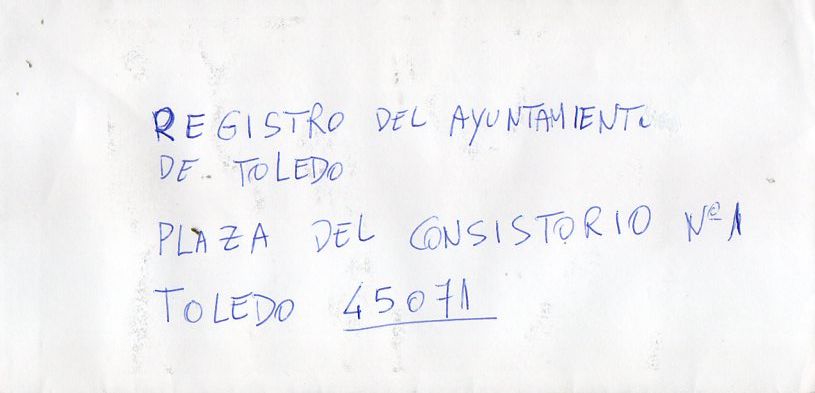 REGISTRO DEL AYUNTAMIENTO
DE TOLEDO
PLAZA DEL CONSISTORIO Nº 1
TOLEDO 45071